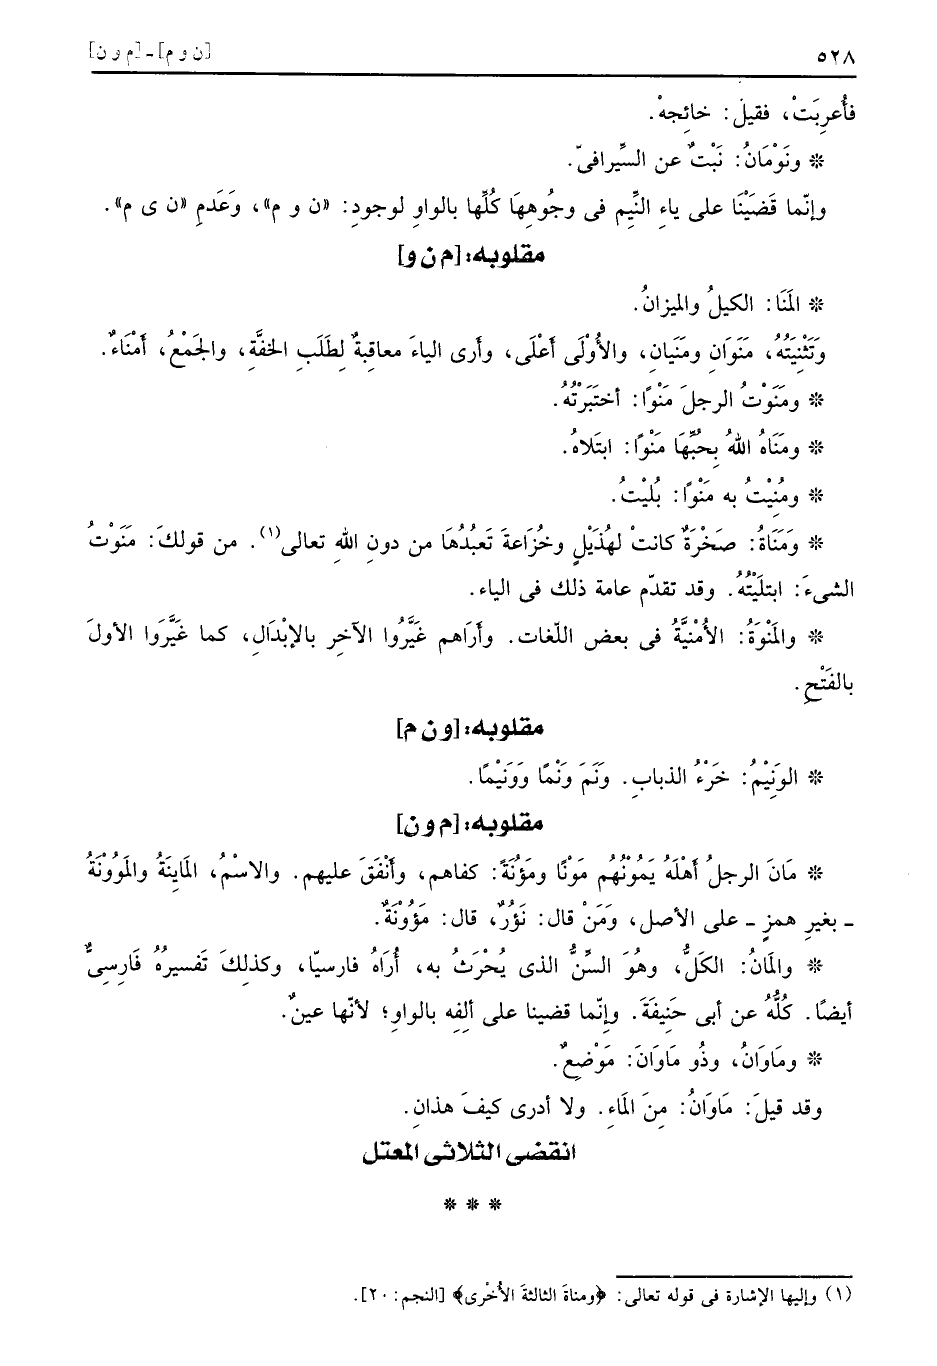 ٥٢٨ [ن و م] ـ [م و ن]
فأُعرِبَتْ، فقيلَ: خائجِهْ.
* ونَوْمَانُ: نَبْتٌ عن السِّيرافىّ.
وإنّما قَضَيْنَا على ياءِ النِّيم فى وجُوهِهَا كُلِّها بالواوِ لوجودِ: «ن و م»، وعَدَمِ «ن ى م».
مقلوبه: [م ن و]
* المَنَا: الكيلُ والميزانُ.
وتَثْنِيَتُهُ، مَنَوَانِ ومَنَيان، والأُوْلَى أعْلَى، وأرى الياءَ معاقبةٌ لطَلَبِ الخفَّة، والجَمْعُ، أمْنَاءٌ.
* ومَنَوْتُ الرجلَ مَنْوًا: أختَبَرْتُهُ.
* ومَنَاهُ اللهُ بِحُبِّهَا مَنْوًا: ابتَلاهُ.
* ومُنِيْتُ به مَنْوًا: بُلِيْتُ.
* وَمَنَاةُ: صَخْرَةٌ كانتْ لهُذَيْلٍ وخُزَاعةَ تَعبُدُهَا من دونِ اللهِ تعالى(١). من قولكَ: مَنَوْتُ
الشىءَ: ابتلَيْتُهُ. وقد تقدّم عامة ذلك فى الياء.
* والمَنْوَةُ: الأُمْنِيَّةُ فى بعض اللّغات. وأرَاهم غَيَّرُوا الآخر بالإبْدَالِ، كما غَيَّروا الأولَ
بالفَتْحِ.
مقلوبه: [و ن م]
* الوَنِيْمُ: خَرْءُ الذبابِ. وَنَمَ وَنْمًا وَوَنَيْمًا.
مقلوبه: [م و ن]
* مَانَ الرجلُ أهْلَهُ يَمُوْنُهُم مَوْنًا ومَؤُنَةً: كفاهم، وأنْفَقَ عليهم. والاسْمُ، المَاينَةُ والمَوُوْنَةُ
ـ بغيرِ همزٍ ـ على الأصل، ومَنْ قال: نَؤُرٌ، قال: مَؤُوْنَةٌ.
* والمَانُ: الكَلُّ، وهُوَ السِّنُّ الذى يُحْرَثُ به، أُرَاهُ فارسيّا، وكذلكَ تَفسيرُهُ فَارِسِىٌّ
أيضًا. كُلُّهُ عن أبى حَنِيفَةَ. وإنّما قضينا على ألفِهِ بالواوِ؛ لأنّها عينٌ.
* ومَاوَانُ، وذُو مَاوَانَ: مَوْضِعٌ.
وقد قيلَ: مَاوَانُ: مِنَ المَاءِ. ولا أدرى كيفَ هذانِ.
انقضى الثلاثى المعتل
* * *
(١) وإليها الإشارة فى قوله تعالى: ﴿ومناةَ الثالثةَ الأُخْرى﴾ [النجم: ٢٠].